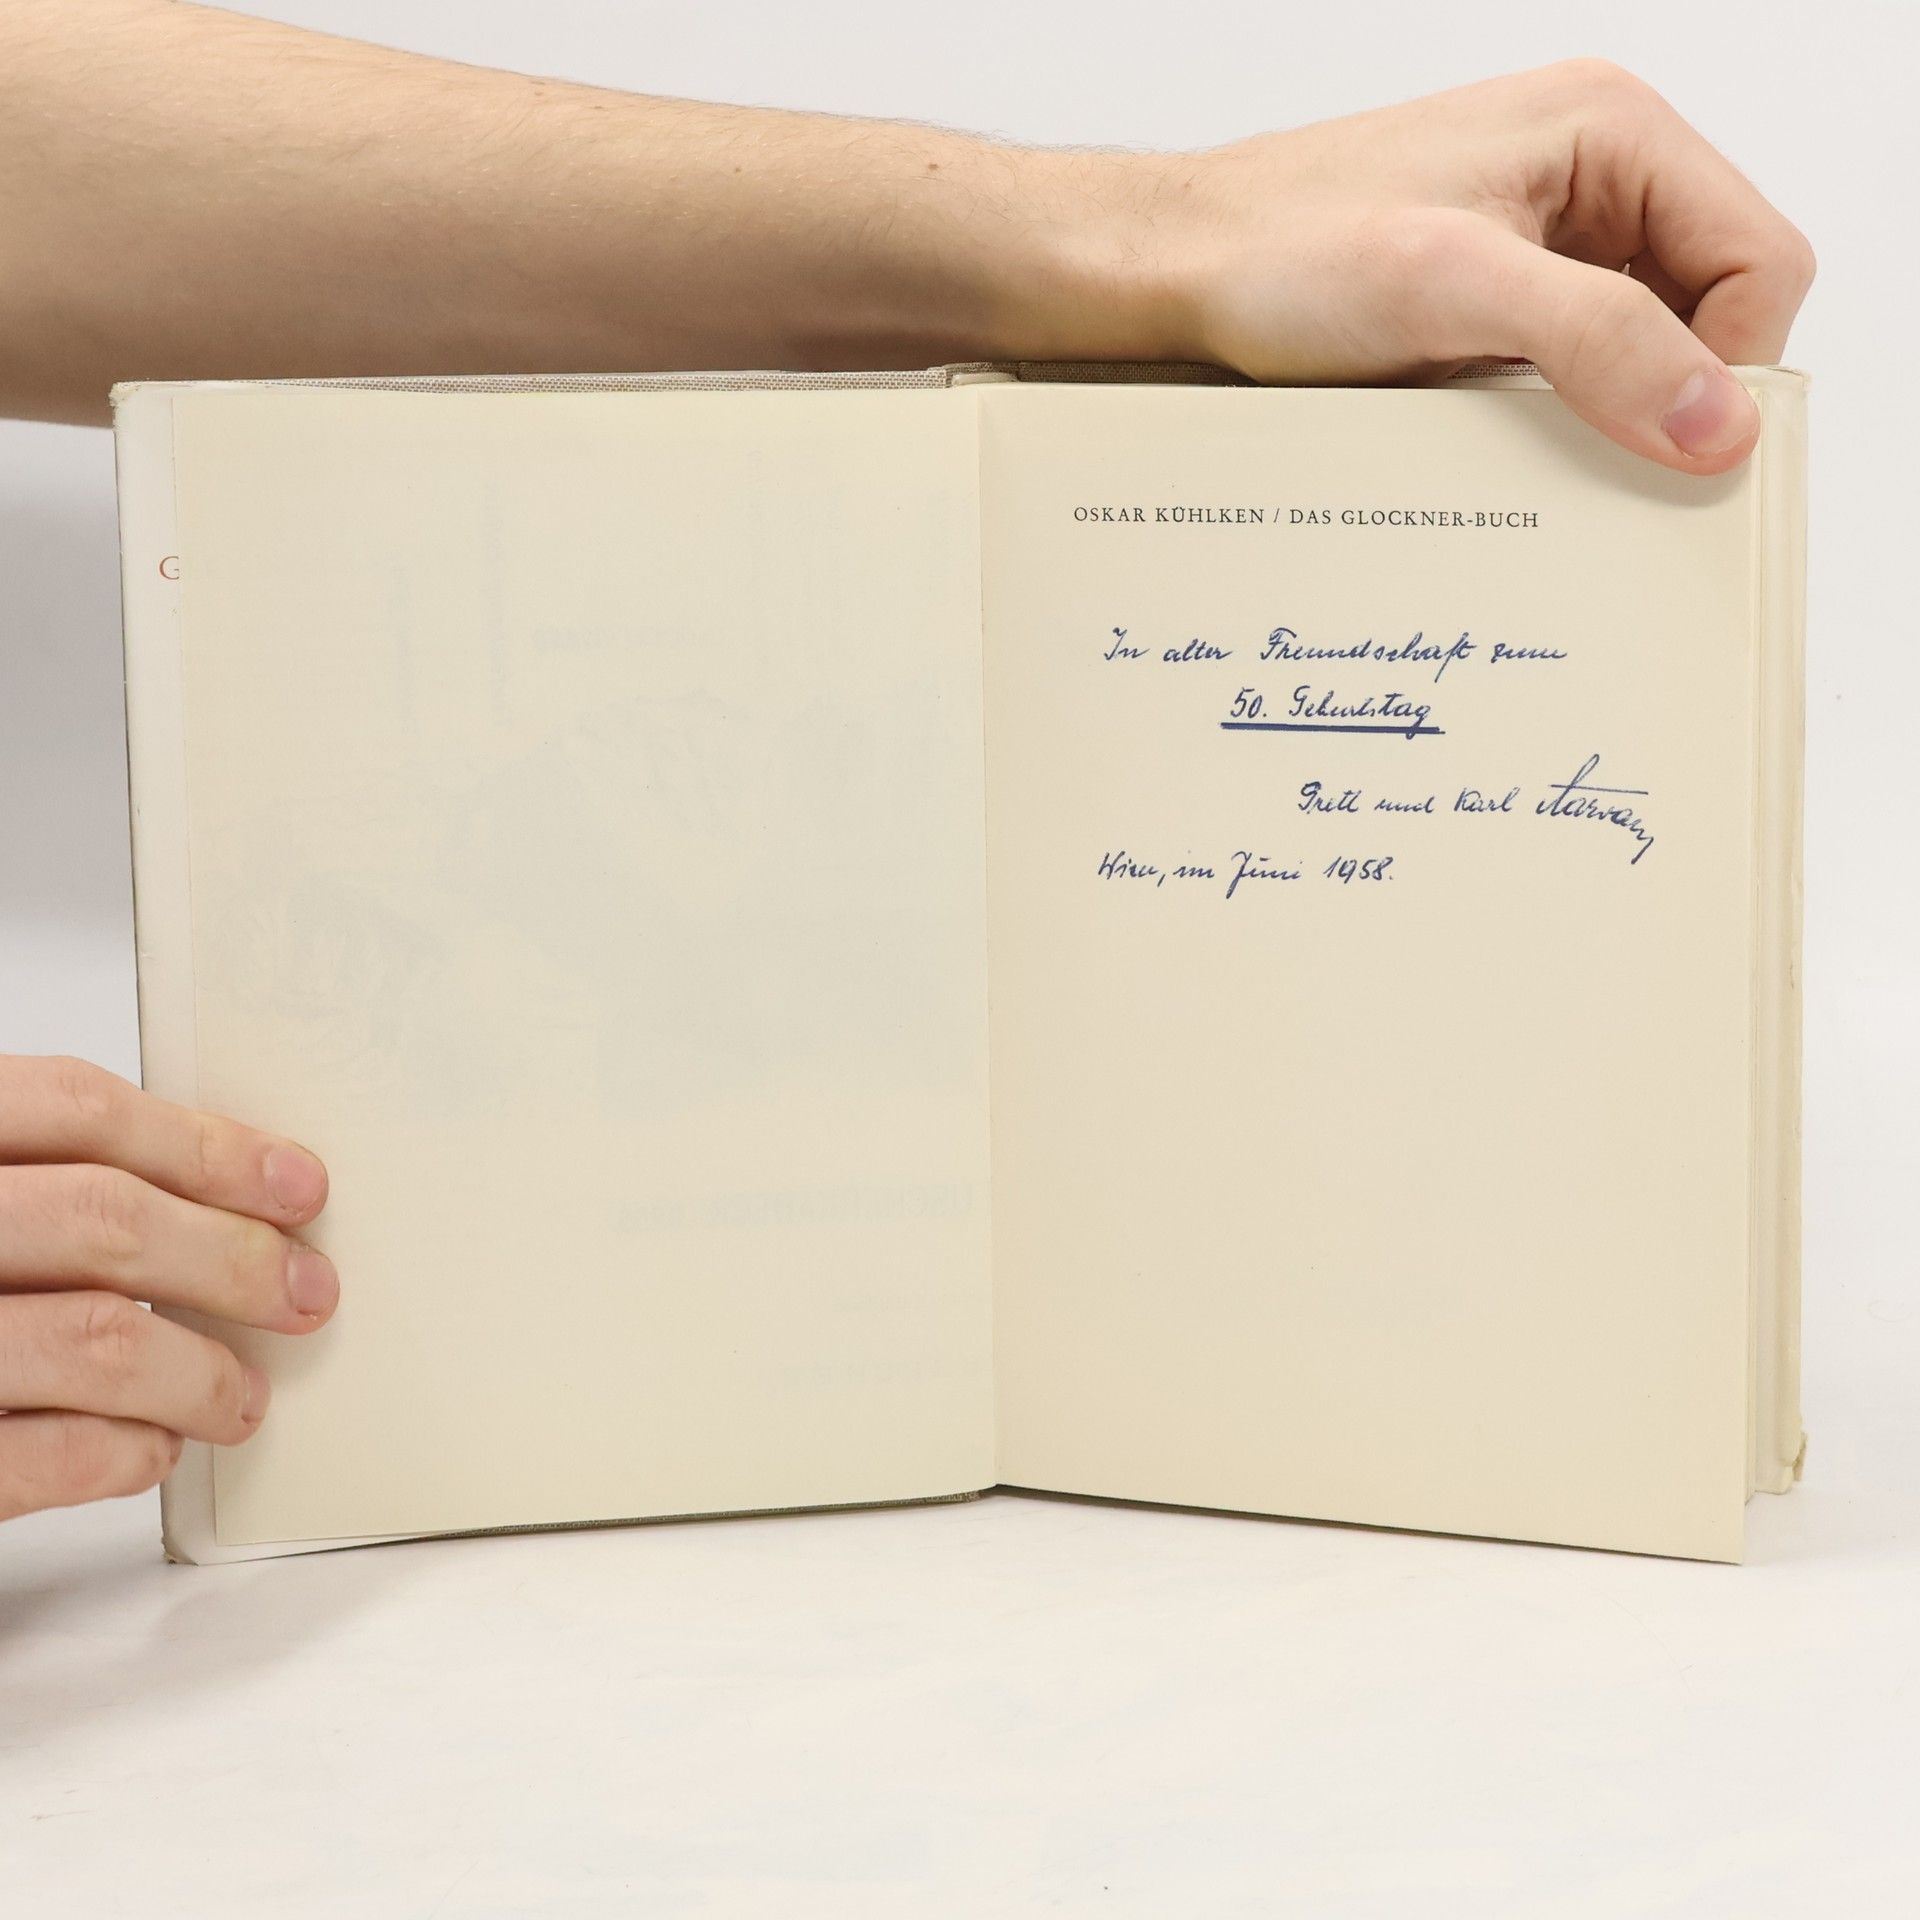 G
OSKAR KÜHLKEN / DAS GLOCKNER-BUCH
In alter Freundschaft zum
50. Geburtstag
Gretl und Karl
Wien, im Juni 1958.